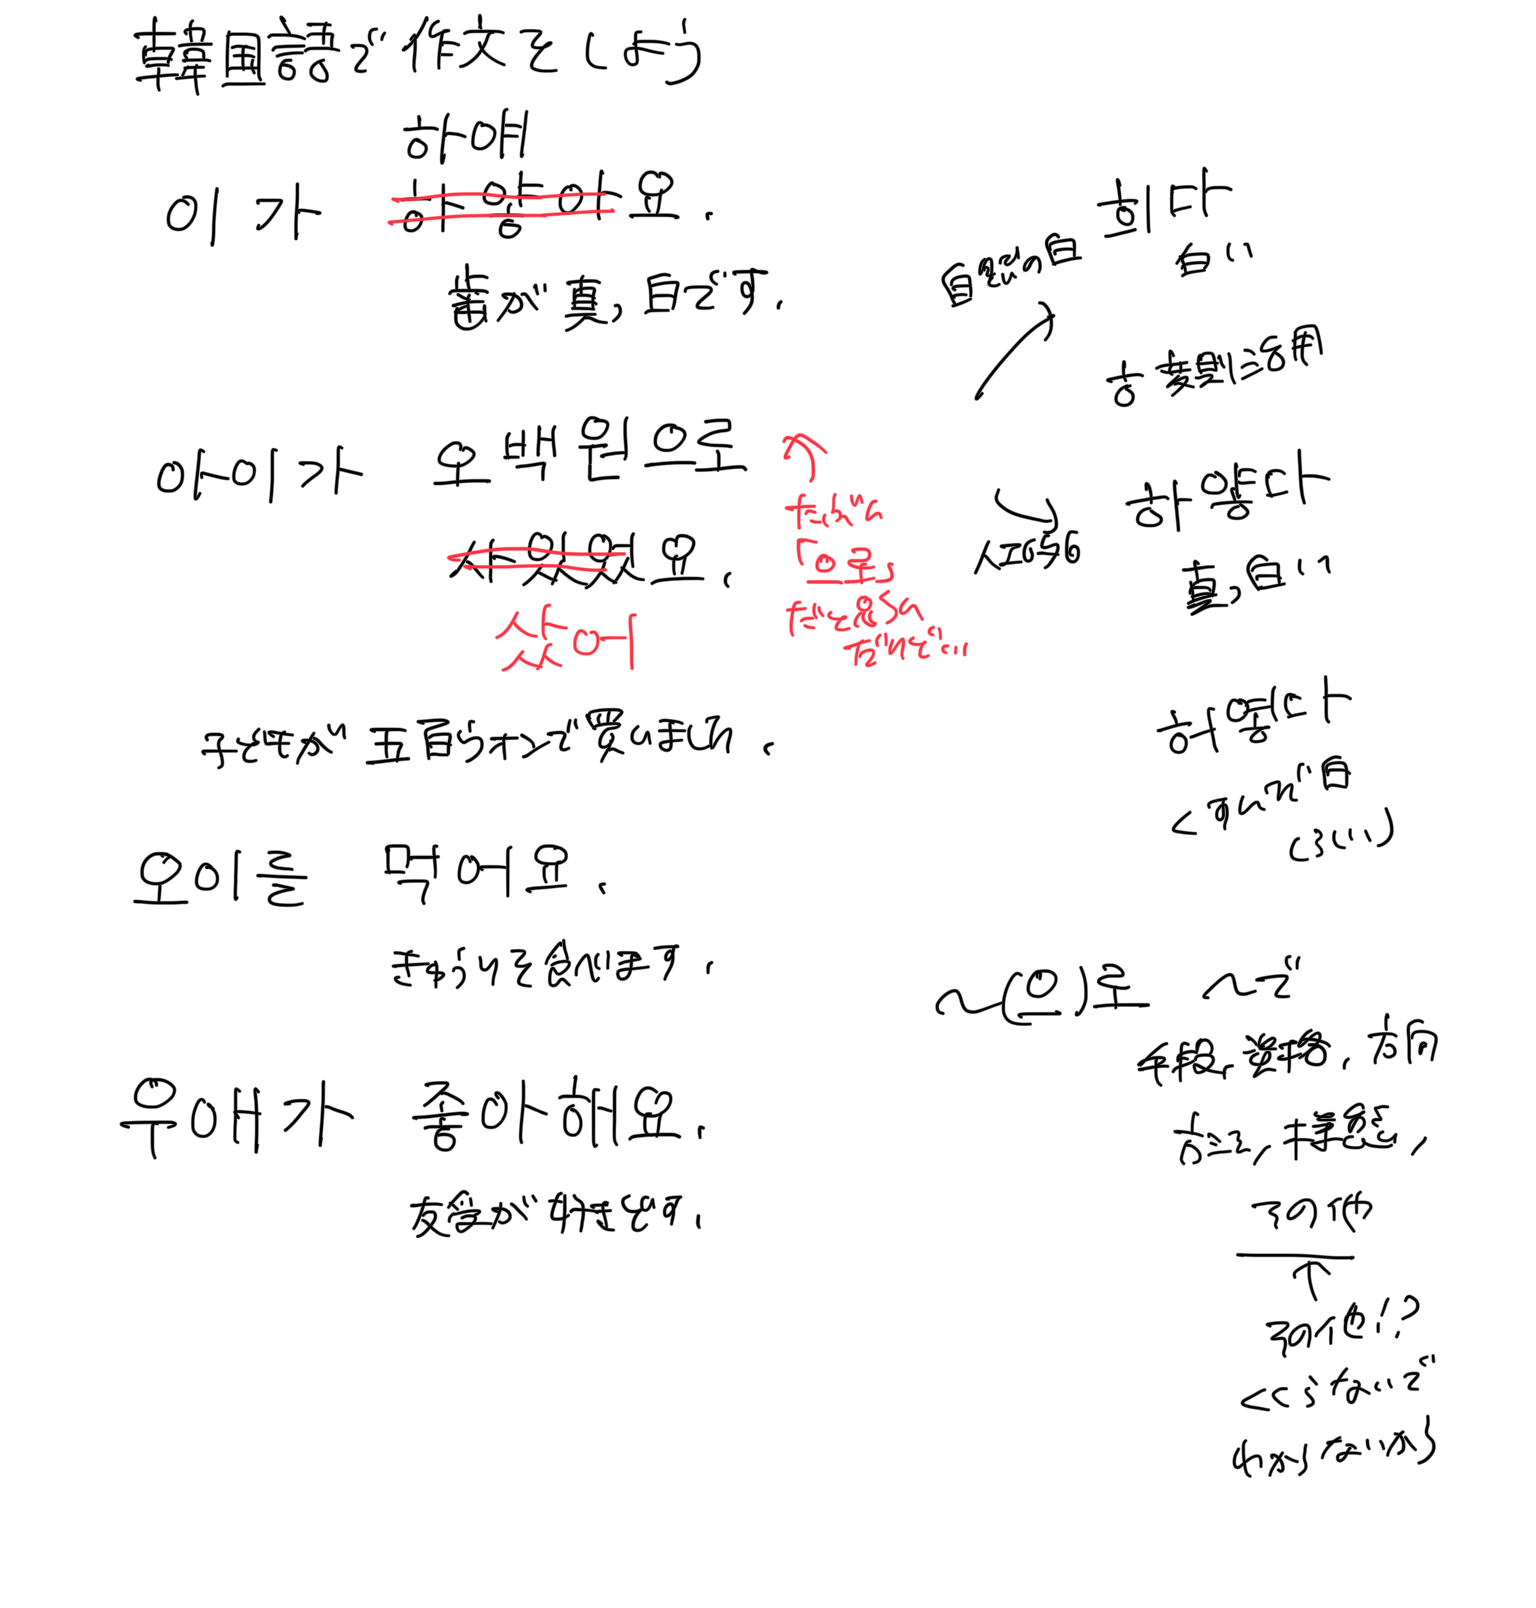 韓国語で作文をしよう
하얘
이가 하얗아요.
歯が真っ白です.
아이가 오백원으로
사있었요.
샀어
子どもが五百うオンで買いました.
오이를 먹어요.
きゅうりを食べます.
우애가 좋아해요.
友愛が好きです.
↑
たぶん
「으로」
だと思うん
だけど…
自然の白
희다
白い
ㅎ変則活用
人工的
하얗다
真っ白い
허옇다
くすんで白
(ろい)
~(으)로 ~で
手段,資格,方向
方法,様態,
その他
↑
その他!?
くくらないで
わからないから